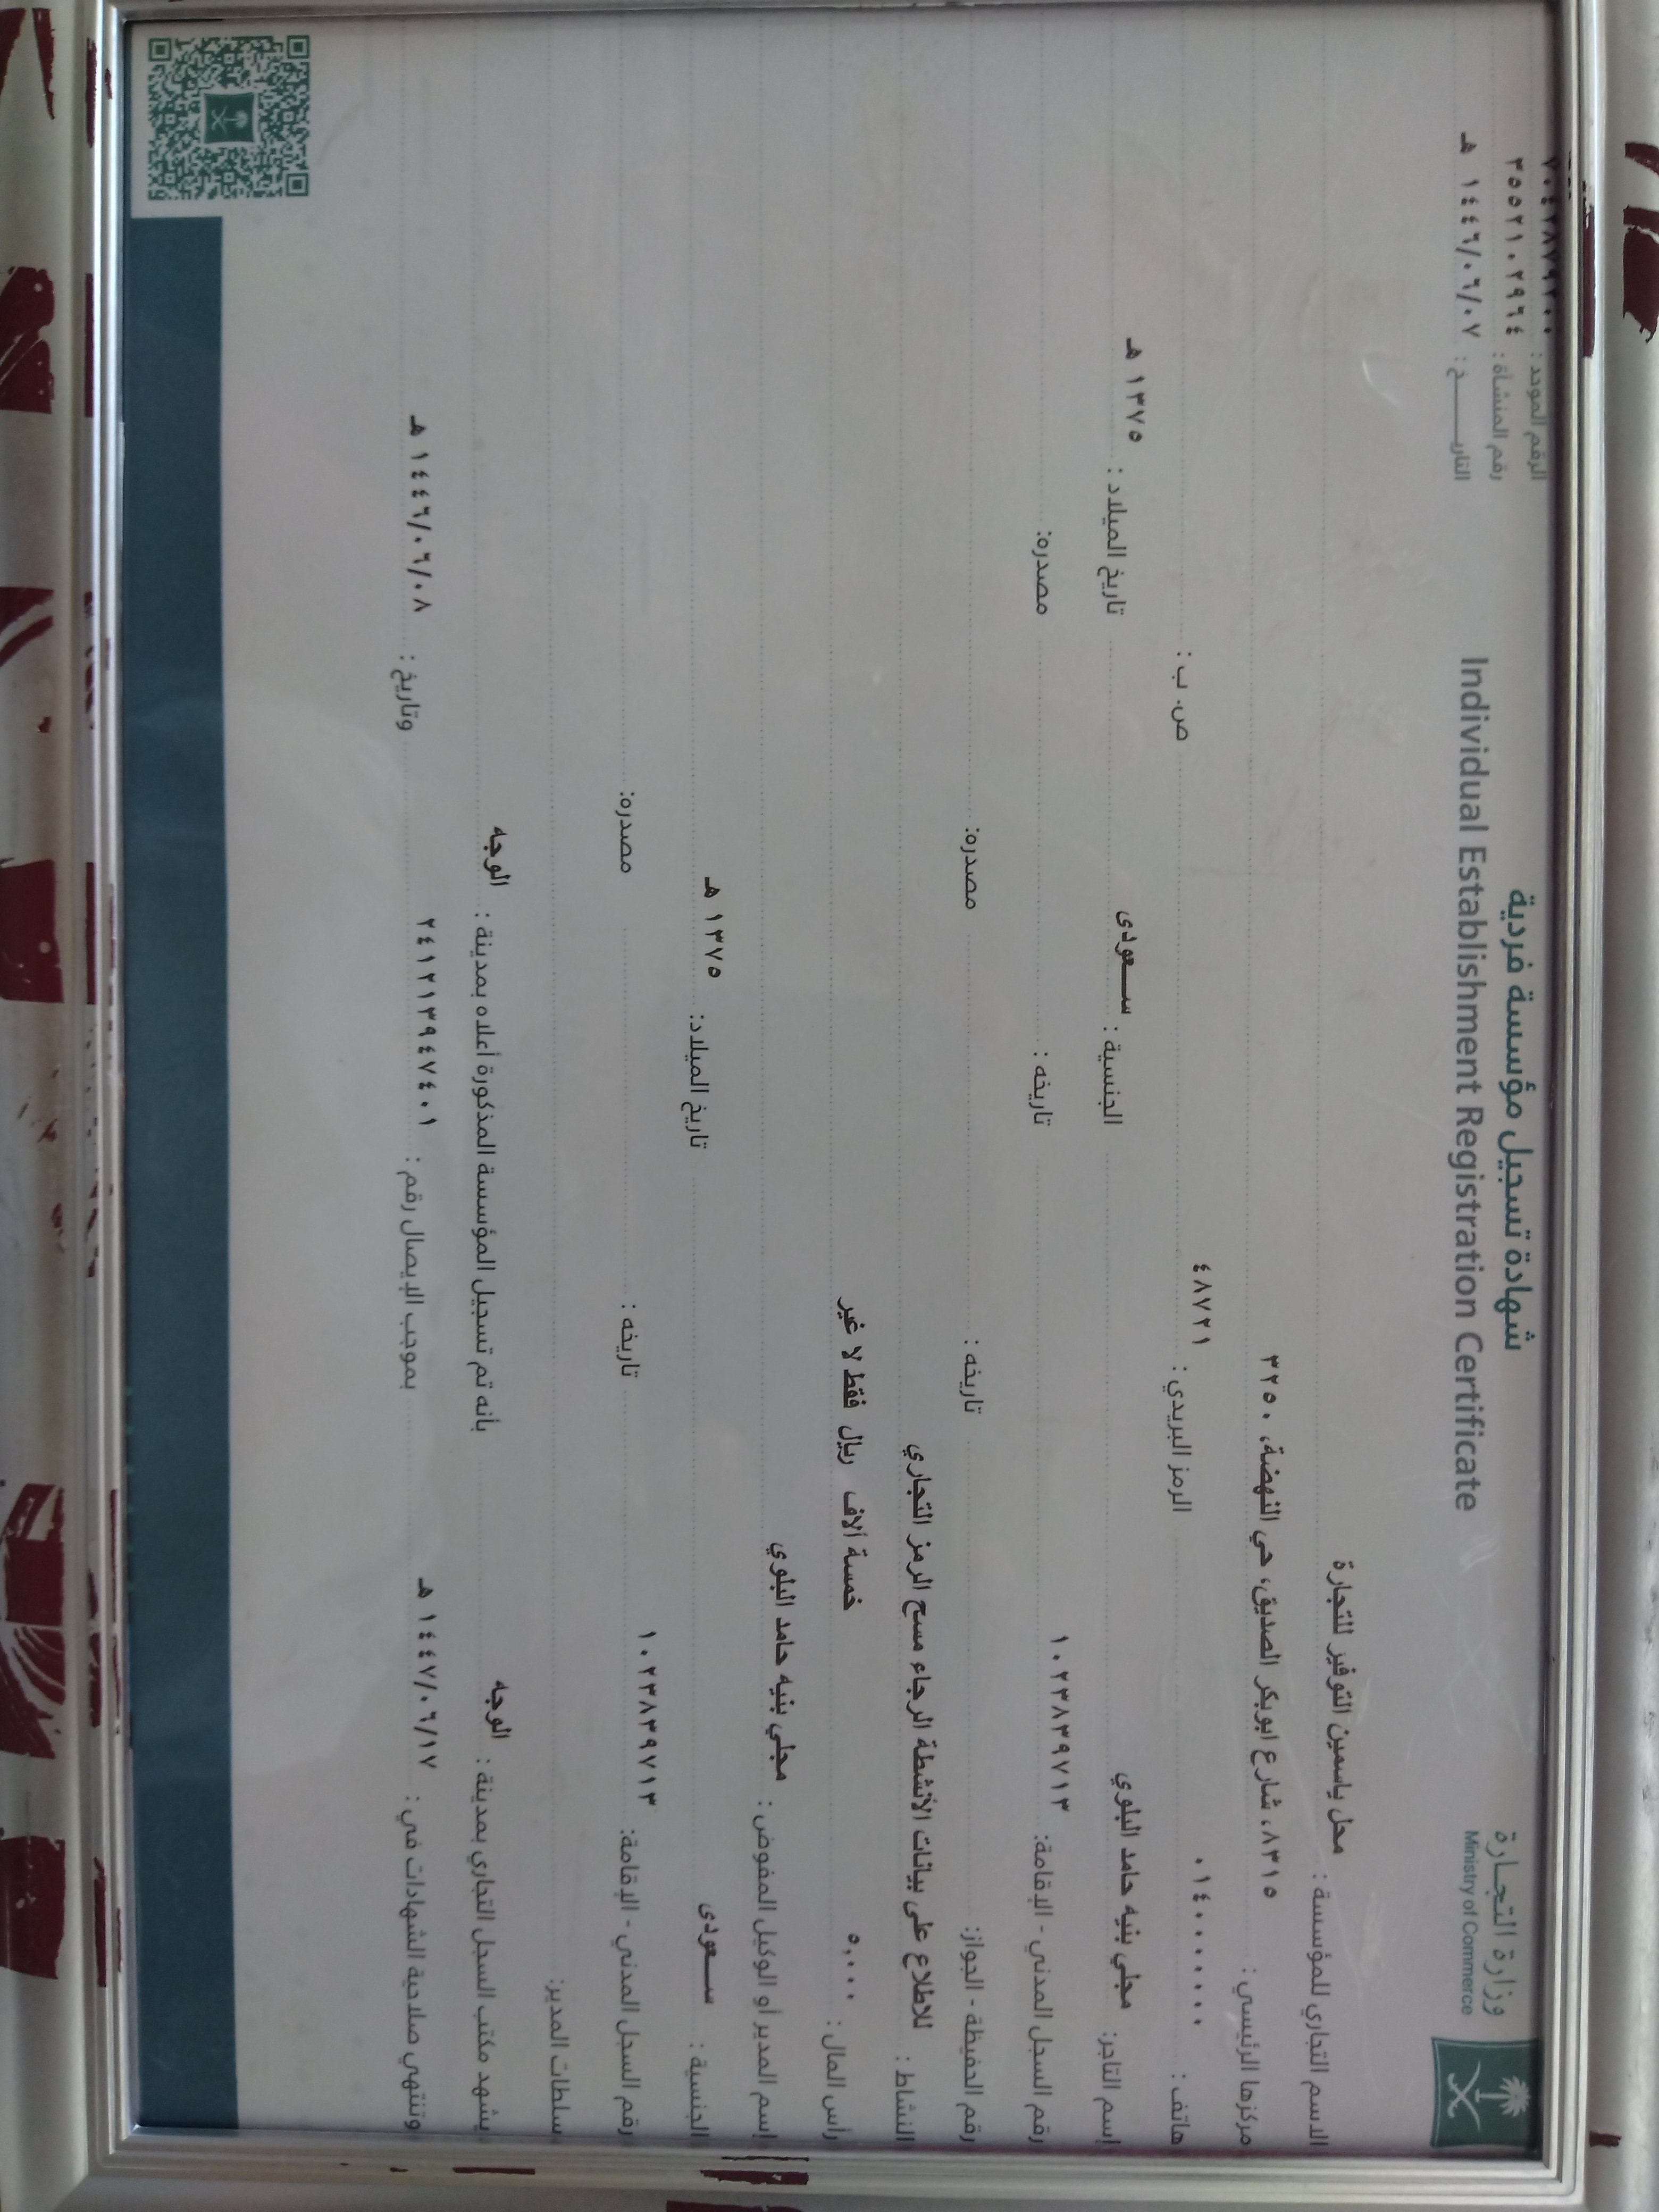 وزارة التجـــارة
Ministry of Commerce
شهادة تسجيل مؤسسة فردية
Individual Establishment Registration Certificate
الرقم الموحد :
رقم المنشأة : ٣٥٥٢١٠٢٩٦٤
التاريـــــــخ : ١٤٤٦/٠٦/٠٧ هـ
الاسم التجاري للمؤسسة : محل ياسمين التوفير للتجارة
مركزها الرئيسي : ٨٣١٥، شارع ابوبكر الصديق، حي النهضة، ٣٢٥٠
هاتف : ٠١٤٠٠٠٠٠٠٠ الرمز البريدي : ٤٨٧٢١ ص. ب :
إسم التاجر: مجلي بنيه حامد البلوي الجنسية : ســعودى تاريخ الميلاد : ١٣٧٥ هـ
رقم السجل المدني - الإقامة: ١٠٢٣٨٣٩٧١٣ تاريخه : مصدره:
رقم الحفيظة - الجواز: تاريخه : مصدره:
النشاط : للاطلاع على بيانات الأنشطة الرجاء مسح الرمز التجاري
رأس المال : ٥,٠٠٠ خمسة آلاف ريال فقط لا غير
إسم المدير أو الوكيل المفوض : مجلي بنيه حامد البلوي
الجنسية : ســعودى تاريخ الميلاد: ١٣٧٥ هـ
رقم السجل المدني - الإقامة: ١٠٢٣٨٣٩٧١٣ تاريخه : مصدره:
سلطات المدير:
يشهد مكتب السجل التجاري بمدينة : الوجه بأنه تم تسجيل المؤسسة المذكورة أعلاه بمدينة : الوجه
وتنتهي صلاحية الشهادات في : ١٤٤٧/٠٦/١٧ هـ بموجب الإيصال رقم : ٢٤١٢١٣٩٤٧٤٠١ وتاريخ : ١٤٤٦/٠٦/٠٨ هـ